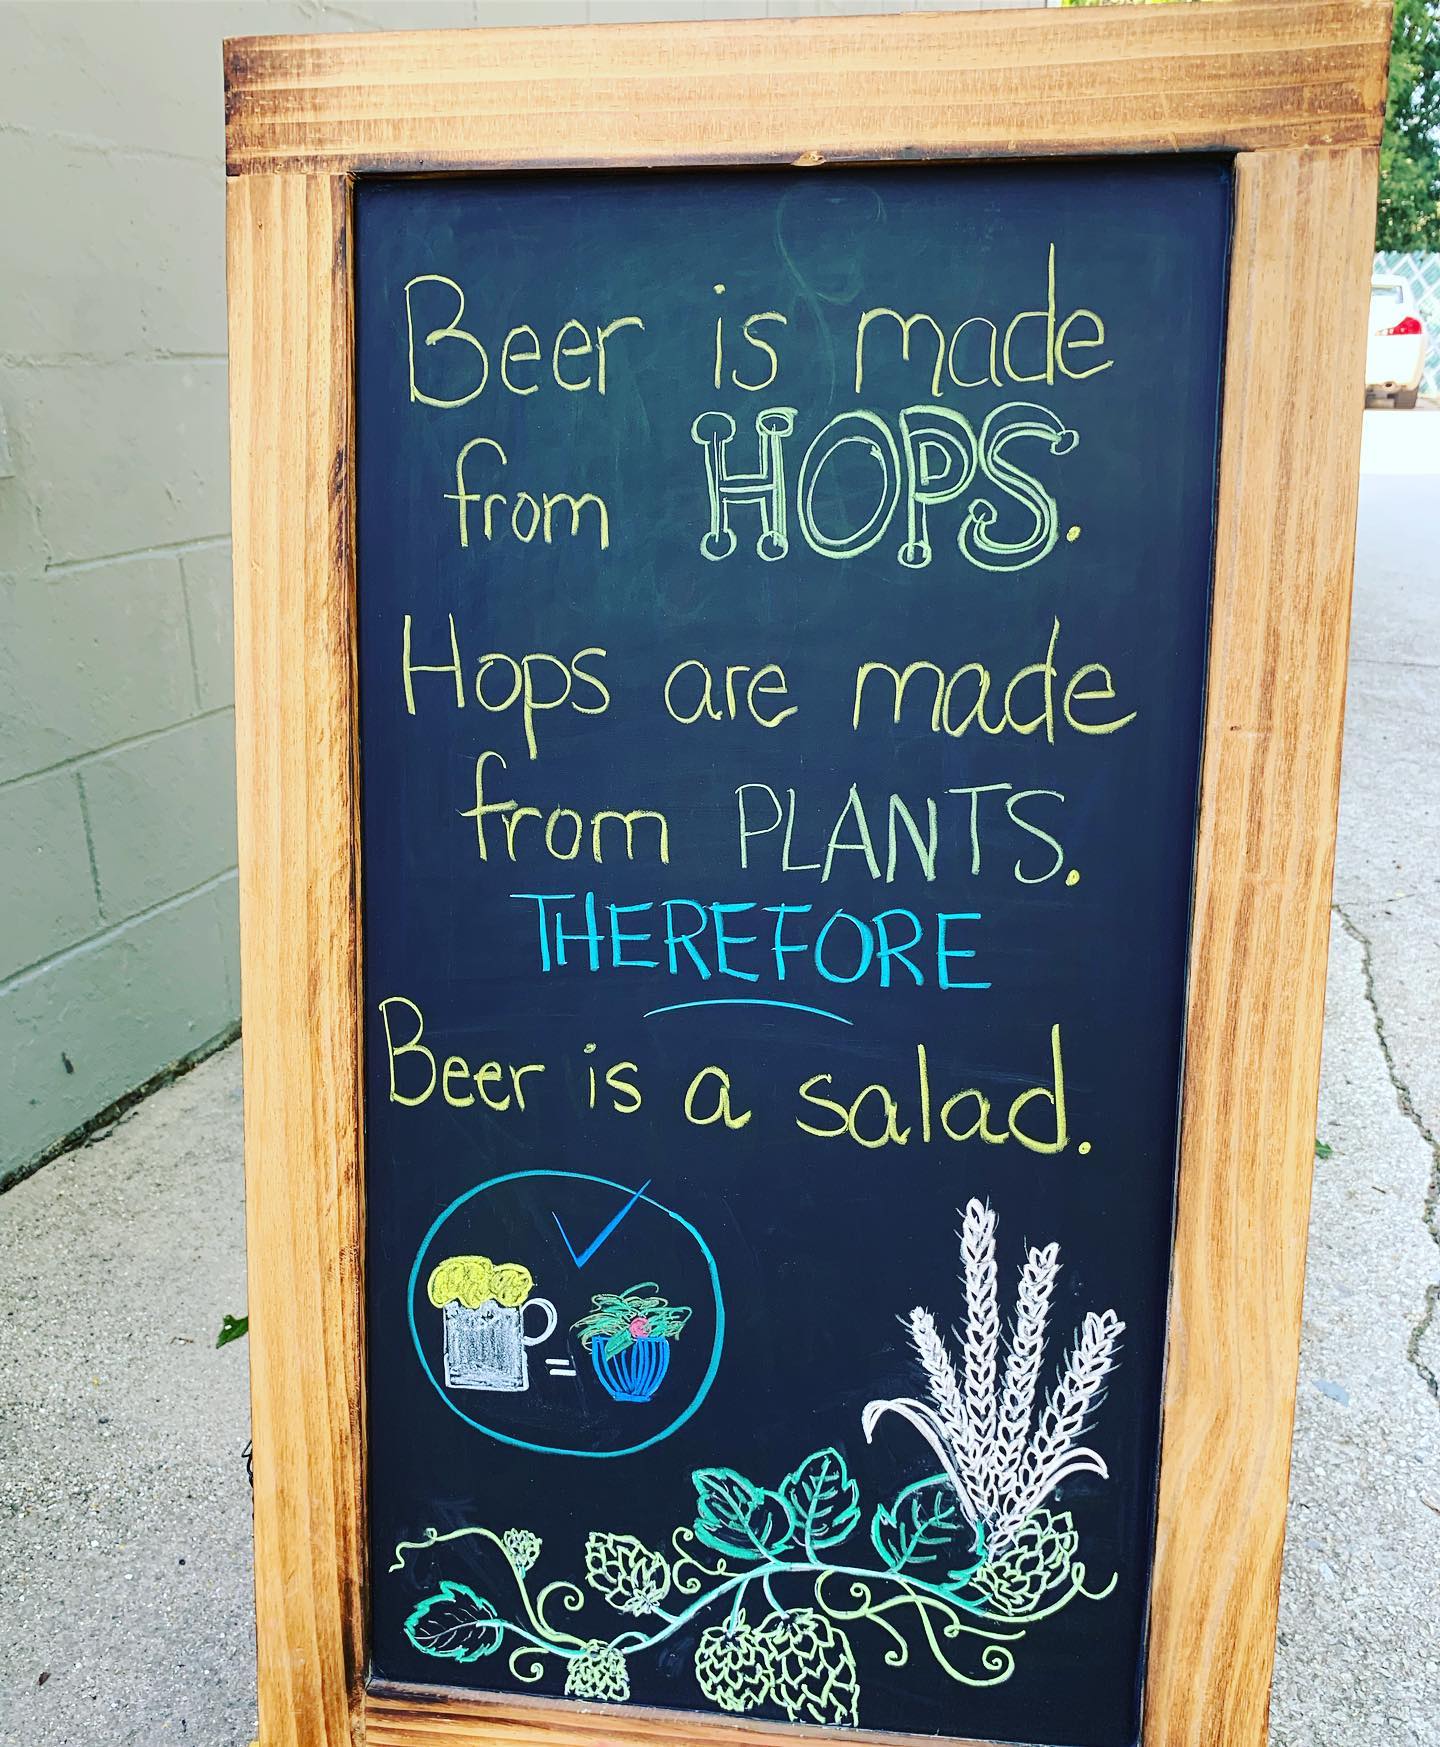 Beer is made
from HOPS.
Hops are made
from PLANTS.
THEREFORE
Beer is a salad.
=